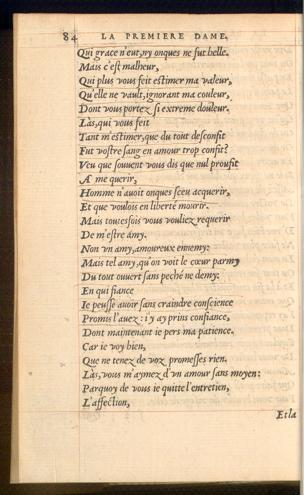 84 LA PREMIERE DAME.
Qui grace n'eut, ny onques ne fut belle.
Mais c'est malheur,
Qui plus vous feit estimer ma valeur,
Qu'elle ne vault, ignorant ma couleur,
Dont vous portez si extreme douleur.
Làs, qui vous feit
Tant m'estimer, que du tout desconfit
Fut vostre sang en amour trop confit?
Veu que souuent vous dis que nul proufit
A me querir,
Homme n'auoit onques sceu acquerir,
Et que voulois en liberté mourir.
Mais toutesfois vous vouliez requerir
De m'estre amy.
Non vn amy, amoureux ennemy:
Mais tel amy, qu'on voit le cœur parmy
Du tout ouuert sans peché ne demy:
En qui fiance
Ie peusse auoir sans craindre conscience
Promis l'auez: i'y ay prins confiance,
Dont maintenant ie pers ma patience.
Car ie voy bien,
Que ne tenez de voz promesses rien.
Làs, vous m'aymez d'vn amour sans moyen:
Parquoy de vous ie quitte l'entretien,
L'affection,
Et la